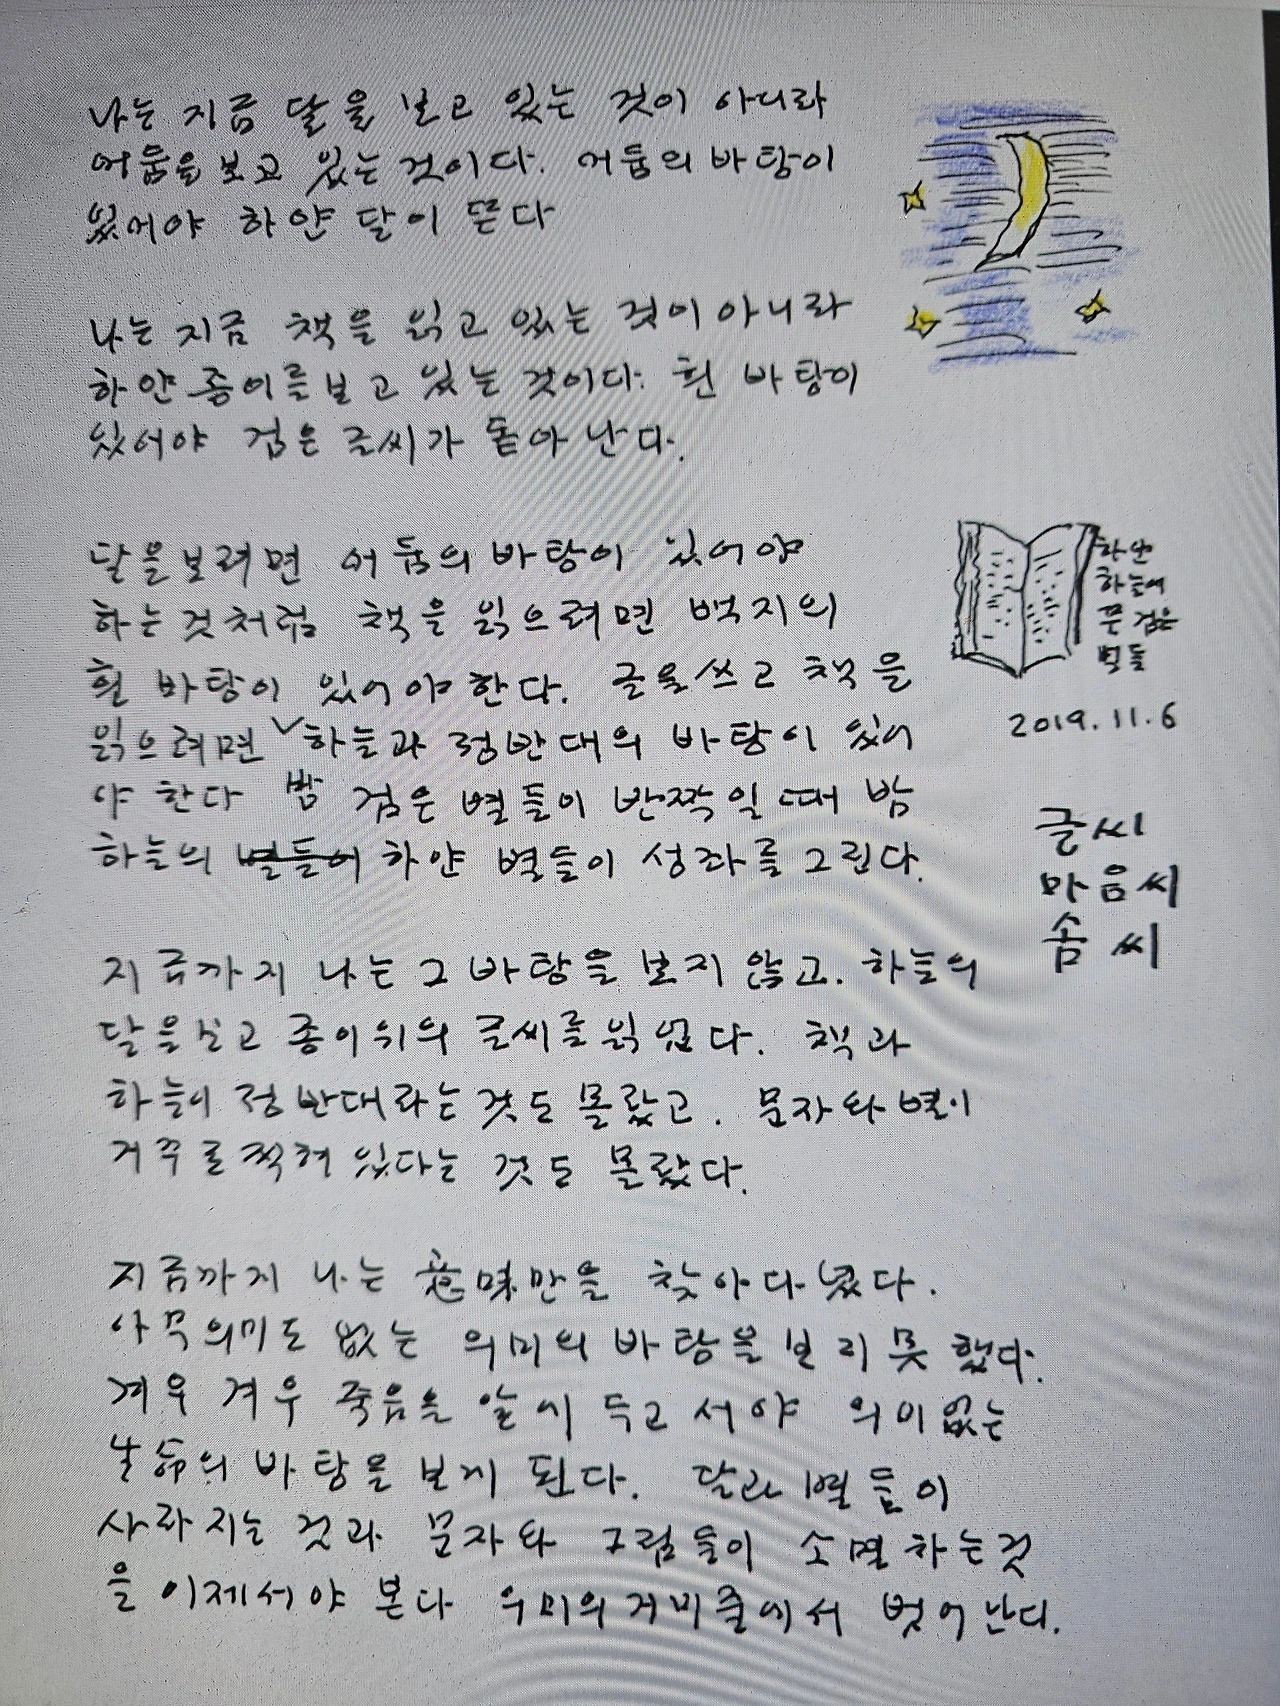 나는 지금 달을 보고 있는 것이 아니라
어둠을 보고 있는 것이다. 어둠의 바탕이
있어야 하얀 달이 뜬다
나는 지금 책을 읽고 있는 것이 아니라
하얀 종이를 보고 있는 것이다. 흰 바탕이
있어야 검은 글씨가 돋아 난다.
달을 보려면 어둠의 바탕이 있어야
하는 것처럼 책을 읽으려면 백지의
흰 바탕이 있어야 한다. 글을 쓰고 책을
읽으려면 하늘과 정반대의 바탕이 있어
야 한다 밤 검은 별들이 반짝일 때 밤
하늘의 별들이 하얀 별들이 성좌를 그린다.
하얀
하늘에
뜬 검은
별들
2019.11.6
글씨
마음씨
솜씨
지금까지 나는 그 바탕을 보지 않고. 하늘의
달을 보고 종이위의 글씨를 읽었다. 책과
하늘이 정반대라는 것도 몰랐고. 문자와 별이
거꾸로 찍혀 있다는 것도 몰랐다.
지금까지 나는 意味만을 찾아다녔다.
아무 의미도 없는 의미의 바탕을 보지 못했다.
겨우 겨우 죽음을 앞에 두고서야 의미없는
生命의 바탕을 보게 된다. 달과 별들이
사라지는 것과 문자와 그림들이 소멸하는 것
을 이제서야 본다 의미의 거미줄에서 벗어난다.